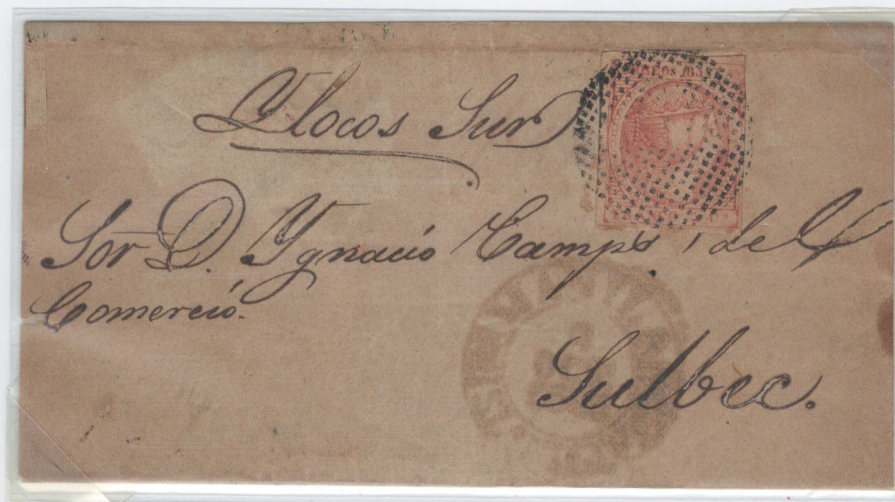 Ylocos Sur
Sor D. Ygnació Camps, del
Comerció.
Sulbec.